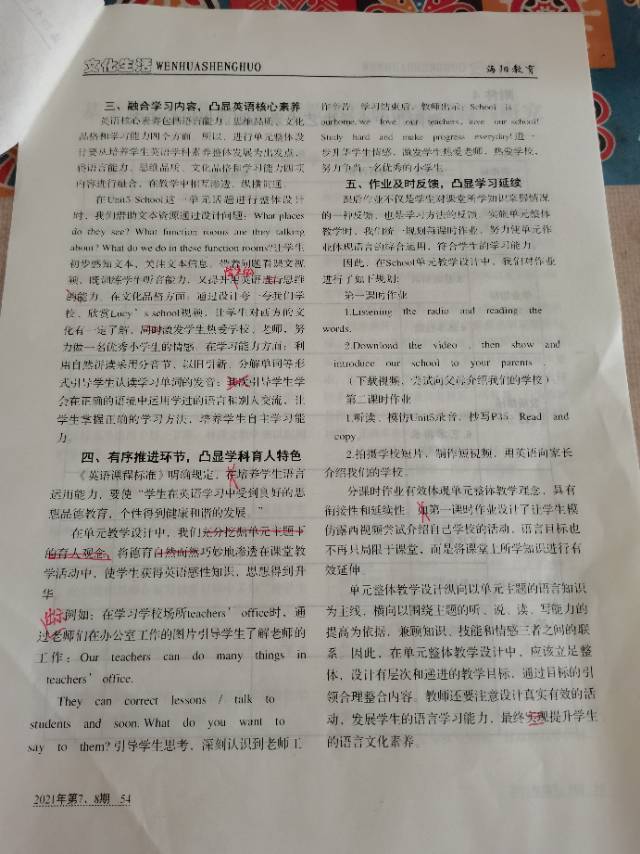 文化生活 WENHUASHENGHUO
海阳教育
三、融合学习内容，凸显英语核心素养
英语核心素养包括语言能力、思维品质、文化
品格和学习能力四个方面。所以，进行单元整体设
计要从培养学生英语学科素养整体发展为出发点，
将语言能力、思维品质、文化品格和学习能力四项
内容进行融合，在教学中相互渗透，纵横贯通。
在Unit5 School这一单元话题进行整体设计
时，我们借助文本资源通过设计问题：What places
do they see? What function rooms are they talking
about? What do we do in these function rooms?让学生
初步感知文本，关注文本信息，带着问题看课文视
频，既训练学生听音能力，又提升用英语进行思维
的能力。在文化品格方面：通过设计夸一夸我们学
校、欣赏Lucy's school视频，让学生对西方的文
化有一定了解，同时激发学生热爱学校、老师，努
力做一名优秀小学生的情感。在学习能力方面：利
用自然拼读采用分音节、以旧引新、分解单词等形
式引导学生认读学习单词的发音；引导学生学
会在正确的语境中运用学过的语言和别人交流，让
学生掌握正确的学习方法，培养学生自主学习能
力。
四、有序推进环节，凸显学科育人特色
《英语课程标准》明确规定，在培养学生语言
运用能力，要使“学生在英语学习中受到良好的思
想品德教育，个性得到健康和谐的发展。”
在单元教学设计中，我们充分挖掘单元主题下
的育人观念，将德育自然而然巧妙地渗透在课堂教
学活动中，使学生获得英语感性知识，思想得到升
华。
例如：在学习学校场所teachers' office时，通
过老师们在办公室工作的图片引导学生了解老师的
工作：Our teachers can do many things in
teachers' office.
They can correct lessons / talk to
students and soon. What do you want to
say to them? 引导学生思考，深刻认识到老师工
作辛苦。学习结束后，教师出示：School is
ourhome,we love our teachers, love our school!
Study hard and make progress everyday!进一
步升华学生情感，激发学生热爱老师，热爱学校，
努力争当一名优秀的小学生。
五、作业及时反馈，凸显学习延续
课后作业不仅是学生对课堂所学知识掌握情况
的一种反馈，也是学习方法的反馈。实施单元整体
教学时，我们统一规划每课时作业，努力使单元作
业体现语言的综合运用，符合学生的学习能力。
因此，在School单元教学设计中，我们对作业
进行了如下规划：
第一课时作业
1.Listening the radio and reading the
words.
2.Download the video ，then show and
introduce our school to your parents .
（下载视频，尝试向父母介绍我们的学校）
第二课时作业
1.听读、模仿Unit5录音，抄写P35 Read and
copy.
2.拍摄学校短片，制作短视频，用英语向家长
介绍我们的学校。
分课时作业有效体现单元整体教学理念，具有
衔接性和延续性。如第一课时作业设计了让学生模
仿露西视频尝试介绍自己学校的活动，语言目标也
不再只局限于课堂，而是将课堂上所学知识进行有
效延伸。
单元整体教学设计纵向以单元主题的语言知识
为主线，横向以围绕主题的听、说、读、写能力的
提高为依据，兼顾知识、技能和情感三者之间的联
系。因此，在单元整体教学设计中，应该立足整
体，设计有层次和递进的教学目标，通过目标的引
领合理整合内容。教师还要注意设计真实有效的活
动，发展学生的语言学习能力，最终实现提升学生
的语言文化素养。
2021年第7、8期 54